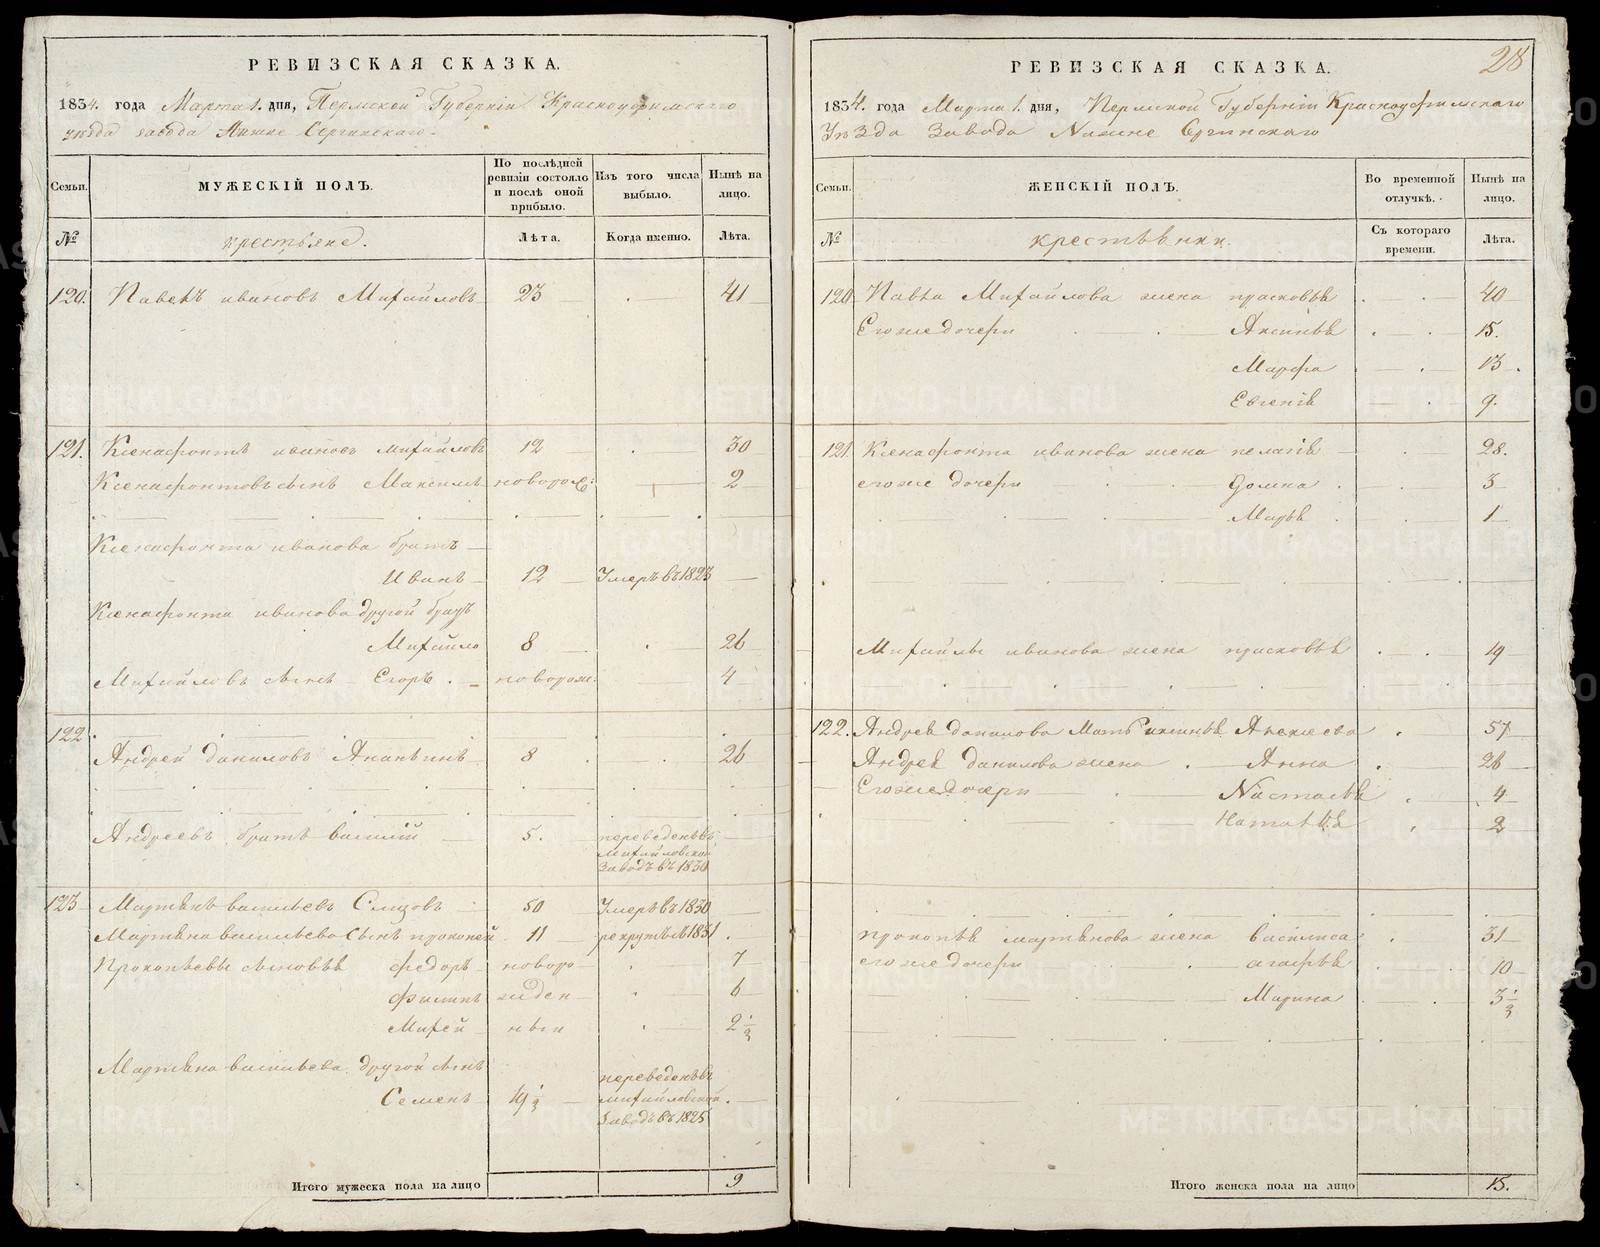 РЕВИЗСКАЯ СКАЗКА.
1834. года Марта 1. дня, Пермской Губернiи Красноуфимскаго
уѣзда завода Нижне Сергинскаго.
Семьи.
МУЖЕСКIЙ ПОЛЪ.
По послѣдней ревизiи состояло и послѣ оной прибыло.
Изъ того числа выбыло.
Нынѣ на лицо.
№
крестьяне.
Лѣта.
Когда именно.
Лѣта.
120. Павелъ ивановъ Михайловъ 23 41
121. Ксенафонтъ ивановъ михайловъ 12 30
Ксенафонтовъ сынъ Максимъ новорож: 2
Ксенафонта иванова братъ
Иванъ 12 Умеръ въ 1823
Ксенафонта иванова другой братъ
Михайло 8 26
Михайловъ сынъ Егоръ новорож. 4
122
Андрей даниловъ Ананьинъ 8 26
Андреевъ братъ василiй 5. переведенъ въ
Михайловской
Заводъ въ 1830
123 Мартынъ васильевъ 50 Умеръ въ 1830
Мартына васильева сынъ прокопей 11 рекрутъ въ 1831
Прокопьевы сыновья федоръ новоро 7
филипъ жден 6
Михей ныи 2 1/2
Мартына васильева другой сынъ
Семенъ 19 1/2 переведенъ въ
михайловской
Заводъ въ 1825
Итого мужеска пола на лицо 9
28
РЕВИЗСКАЯ СКАЗКА.
1834. года Марта 1. дня, Пермской Губернiи Красноуфимскаго
Уѣзда Завода Нижне Сргинскаго
Семьи.
ЖЕНСКIЙ ПОЛЪ.
Во временной отлучкѣ.
Нынѣ на лицо.
№
крестьянки.
Съ котораго времени.
Лѣта.
120 Павла Михайлова жена прасковья 40
Егоже дочери Аксинья 15.
Марфа 13.
Евгенiя 9.
121. Ксенафонта иванова жена пелагiя 28.
егоже дочери Домна 3
Марья 1
Михайлы иванова жена прасковья 19
122. Андрея данилова Мать Алексѣева 57
Андрея данилова жена Анна 26
Егоже дочери Настасья 4
Наталья 2
прокопья мартынова жена василиса 31
егоже дочери агафья 10
Марина 3 1/2
Итого женска пола на лицо 15.
METRIKI.GASO-URAL.RU